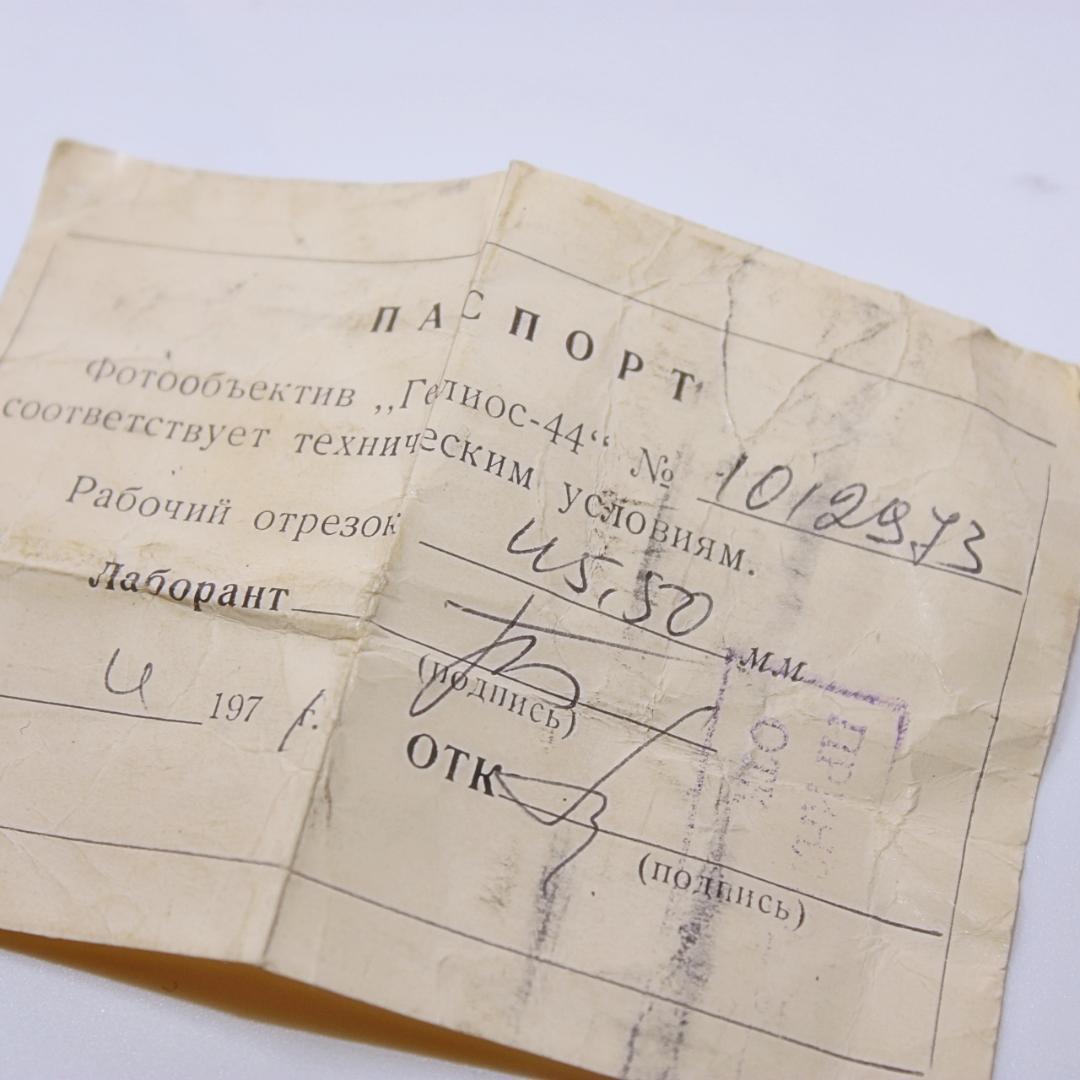 ПАСПОРТ
Фотообъектив „Гелиос-44“ № 1012973
соответствует техническим условиям.
Рабочий отрезок 45,50 мм
Лаборант
(подпись)
197 г.
ОТК
(подпись)